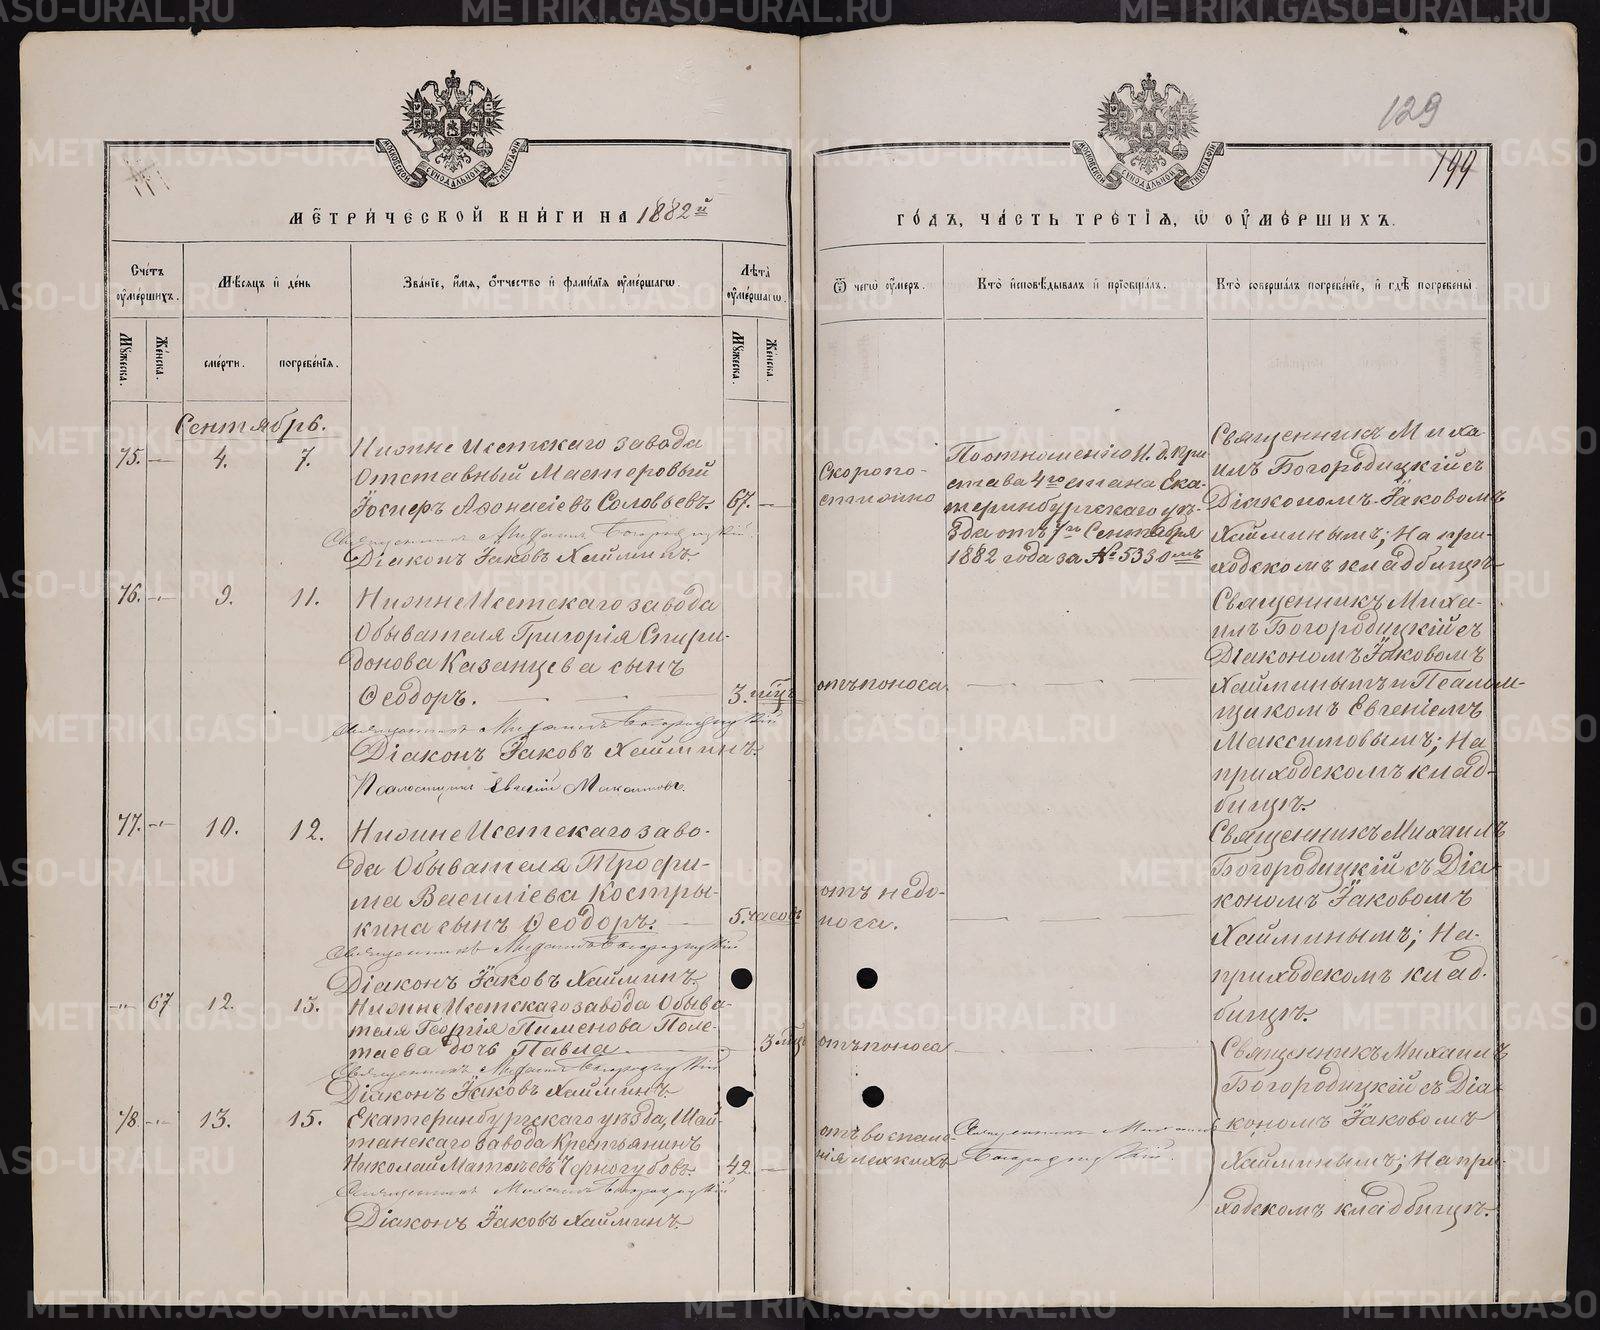 129
199
МОСКОВСКОЙ СИНОДАЛЬНОЙ ТИПОГРАФІИ
МОСКОВСКОЙ СИНОДАЛЬНОЙ ТИПОГРАФІИ
МЕТРИЧЕСКОЙ КНИГИ НА 1882й
ГОДЪ, ЧАСТЬ ТРЕТІЯ, Ѿ ОУМЕРШИХЪ.
Счетъ оумершихъ.
Мѣсяцъ и день
Званіе, имя, отчество и фамилія оумершагѡ.
Лѣта оумершагѡ.
Ѿ чегѡ оумеръ.
Кто исповѣдывалъ и пріобщалъ.
Кто совершалъ погребеніе, и гдѣ погребены.
Мужеска.
Женска.
смерти.
погребенія.
Мужеска.
Женска.
Сентябрь.
75. — 4. 7.
Нижне Исетскаго завода
Отставный Мастеровый
Іосифъ Аѳонасіевъ Соловьевъ. 67. —
Священникъ Михаилъ Богородицкій
Діаконъ Іаковъ Хайминъ.
Скоропо-
стижно
По отношенію И. д. При
става 4го стана Ека-
теринбургскаго уѣ-
зда отъ 7го Сентября
1882 года за № 5330мъ
Священникъ Миха
илъ Богородицкій съ
Діакономъ Іаковомъ
Хайминымъ; На при-
ходскомъ кладбищѣ
76. — 9. 11.
Нижне Исетскаго завода
Обывателя Григорія Спири-
донова Казанцева сынъ
Ѳеодоръ. — — 3. мѣс.
Священникъ Михаилъ Богородицкій
Діаконъ Іаковъ Хайминъ.
Псаломщикъ Евгеній Максимовъ.
отъ поноса. — —
Священникъ Миха-
илъ Богородицкій съ
Діакономъ Іаковомъ
Хайминымъ и Псалом-
щикомъ Евгеніемъ
Максимовымъ; На
приходскомъ клад-
бищѣ.
77. — 10. 12.
Нижне Исетскаго заво-
да Обывателя Трофи-
ма Василіева Костры-
кина сынъ Ѳеодоръ. — 5. часовъ
Священникъ Михаилъ Богородицкій
Діаконъ Іаковъ Хайминъ.
отъ недо-
носа. — —
Священникъ Михаилъ
Богородицкій съ Діа-
кономъ Іаковомъ
Хайминымъ; На-
приходскомъ клад-
бищѣ.
— 67 12. 15.
Нижне Исетскаго завода Обыва-
теля Георгія Пименова Поле-
таева дочь Павла — 3 мѣс
Священникъ Михаилъ Богородицкій
Діаконъ Іаковъ Хайминъ.
отъ поноса — —
Священникъ Михаилъ
Богородицкій съ Діа-
кономъ Іаковомъ
Хайминымъ; На при-
ходскомъ кладбищѣ.
78. — 13. 15.
Екатеринбургскаго уѣзда, Шай-
танскаго завода Крестьянинъ
Николай Матѳеевъ Черногубовъ. 42. —
Священникъ Михаилъ Богородицкій
Діаконъ Іаковъ Хайминъ.
отъ воспале-
нія легкихъ
Священникъ Михаилъ
Богородицкій.
METRIKI.GASO-URAL.RU